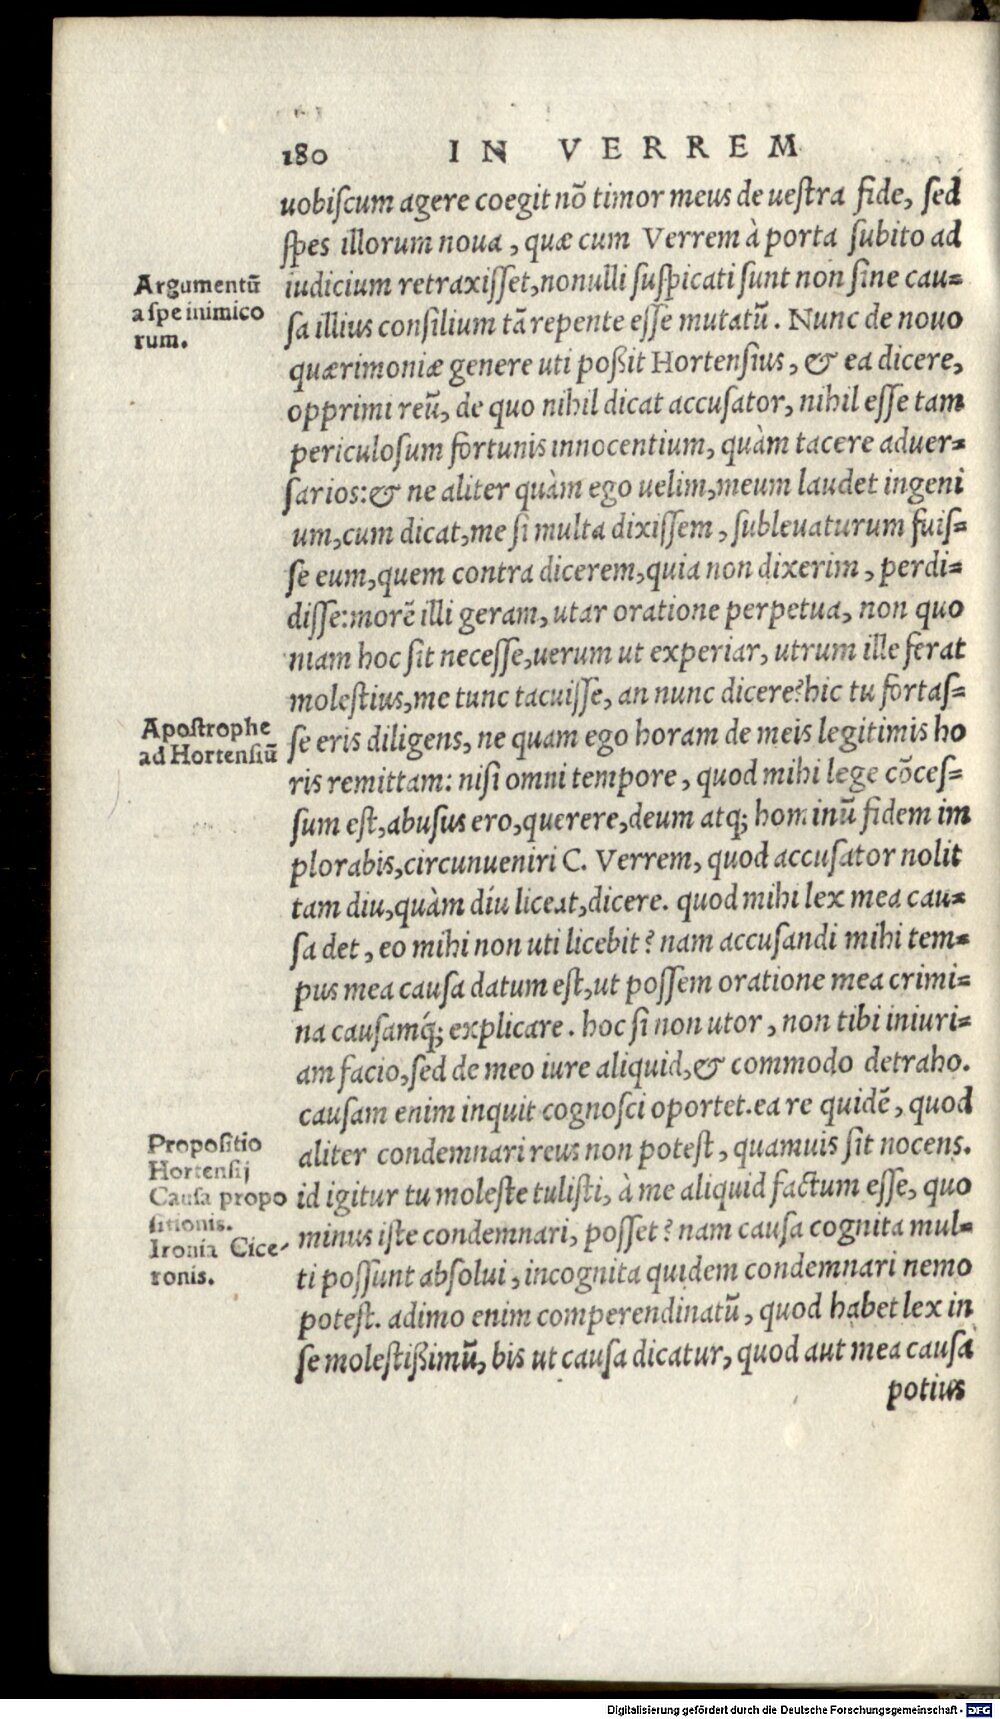 180 IN VERREM
uobiſcum agere coegit nō timor meus de ueſtra fide, ſed
ſpes illorum noua, quæ cum Verrem à porta ſubito ad
Argumentū
a ſpe inimico
rum.
iudicium retraxiſſet, nonulli ſuſpicati ſunt non ſine cau⸗
ſa illius conſilium tā repente eſſe mutatū. Nunc de nouo
quærimoniæ genere uti poßit Hortenſius, & ea dicere,
opprimi reū, de quo nihil dicat accuſator, nihil eſſe tam
periculoſum fortunis innocentium, quàm tacere aduer⸗
ſarios: & ne aliter quàm ego uelim, meum laudet ingeni
um, cum dicat, me ſi multa dixiſſem, ſubleuaturum fuiſ⸗
ſe eum, quem contra dicerem, quia non dixerim, perdi⸗
diſſe: morē illi geram, utar oratione perpetua, non quo
niam hoc ſit neceſſe, uerum ut experiar, utrum ille ferat
moleſtius, me tunc tacuiſſe, an nunc dicere? hic tu fortaſ⸗
Apoſtrophe
ad Hortenſiū
ſe eris diligens, ne quam ego horam de meis legitimis ho
ris remittam: niſi omni tempore, quod mihi lege cōceſ⸗
ſum eſt, abuſus ero, querere, deum atq; hominū fidem im
plorabis, circunueniri C. Verrem, quod accuſator nolit
tam diu, quàm diu liceat, dicere. quod mihi lex mea cau⸗
ſa det, eo mihi non uti licebit? nam accuſandi mihi tem⸗
pus mea cauſa datum eſt, ut poſſem oratione mea crimi⸗
na cauſamq́; explicare. hoc ſi non utor, non tibi iniuri⸗
am facio, ſed de meo iure aliquid, & commodo detraho.
cauſam enim inquit cognoſci oportet. ea re quidē, quod
Propoſitio
Hortenſij
Cauſa propo
ſitionis.
Ironia Cice⸗
ronis.
aliter condemnari reus non poteſt, quamuis ſit nocens.
id igitur tu moleſte tuliſti, à me aliquid factum eſſe, quo
minus iſte condemnari, poſſet? nam cauſa cognita mul⸗
ti poſſunt abſolui, incognita quidem condemnari nemo
poteſt. adimo enim comperendinatū, quod habet lex in
ſe moleſtißimū, bis ut cauſa dicatur, quod aut mea cauſa
potius
Digitalisierung gefördert durch die Deutsche Forschungsgemeinschaft - DFG